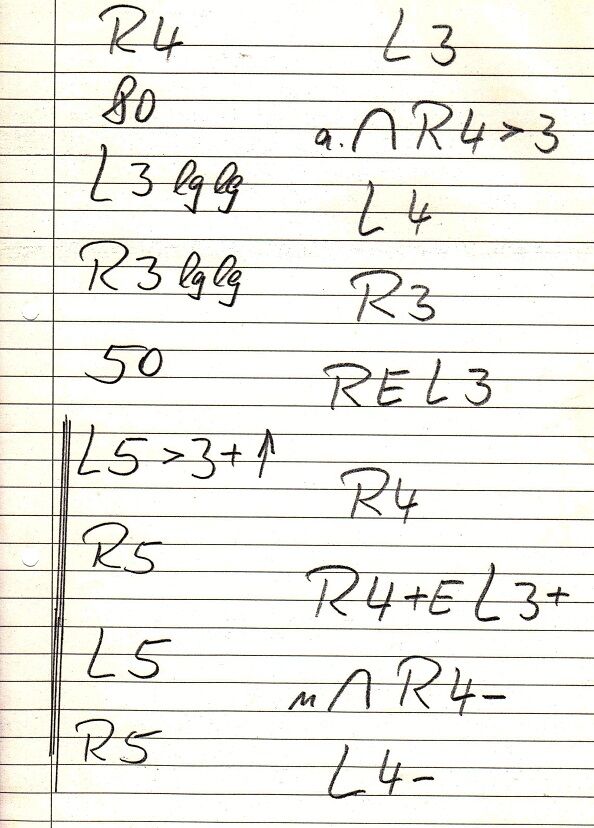 R4
80
L3 lglg
R3 lglg
50
L5 >3+↑
R5
L5
R5
L3
a. ∩ R4>3
L4
R3
RE L3
R4
R4+E L3+
n ∩ R4-
L4-